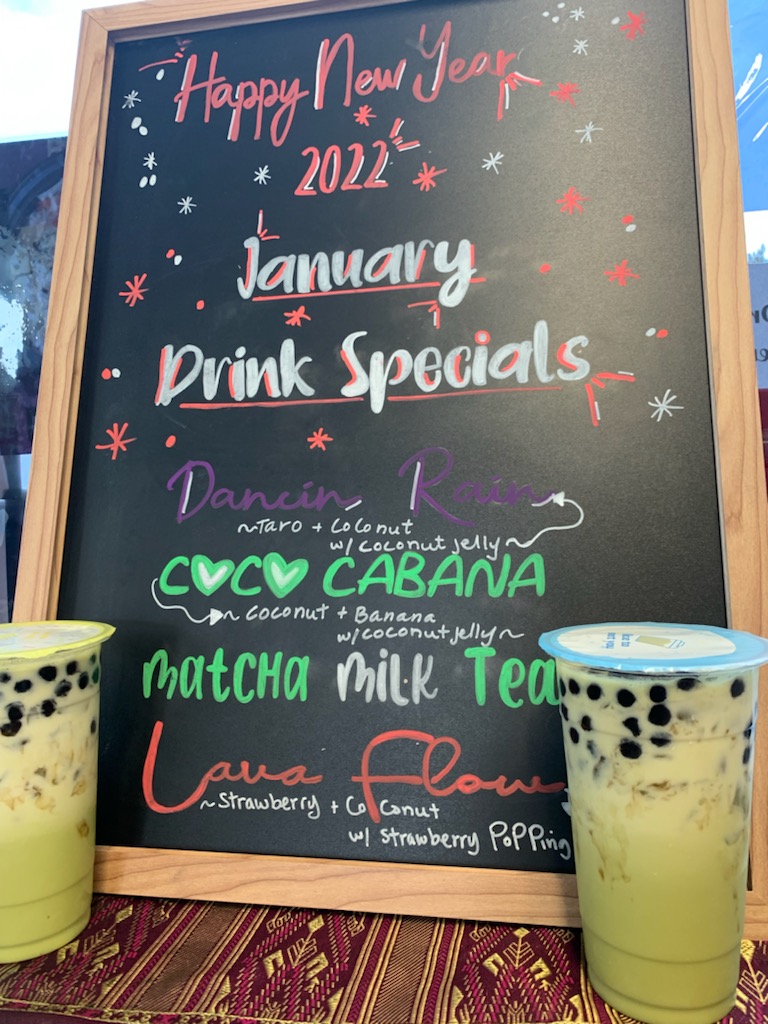 Happy New Year
2022
January
Drink Specials
Dancin Rain
~Taro + Coconut
w/ coconut jelly~
COCO CABANA
~ coconut + Banana
w/coconut jelly~
matcHa milk Tea
Lava Flow
~Strawberry + CoConut
w/ Strawberry PoPPing